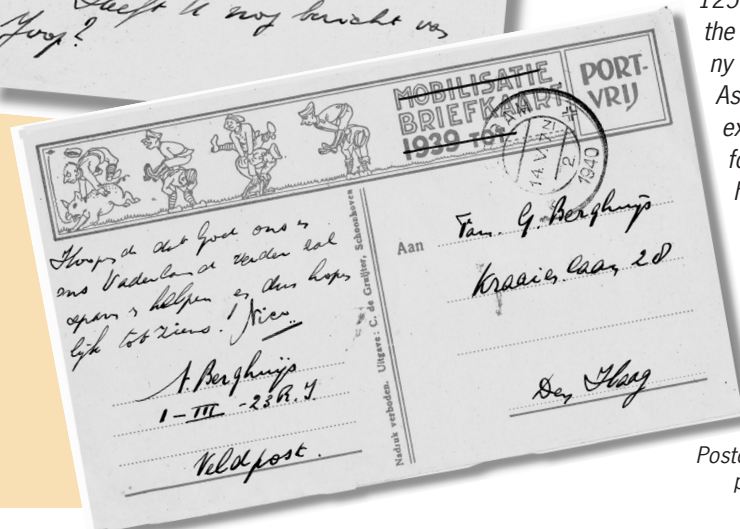 Heeft U nog bericht van
Joop?
MOBILISATIE
BRIEFKAART
1939 TOT
PORT-
VRIJ
14 VI
2
1940
Hopende dat God ons en
ons Vaderland verder zal
sparen & helpen en dus hope
lijk tot ziens! Nico
N. Berghuijs
1-III-23 R.I.
Veldpost.
Nadruk verboden. Uitgave: C. de Gruijter, Schoonhoven
Aan
Fam. G. Berghuijs
Kraaienlaan 28
Den Haag
125
the
ny
As
ex
fo
h
Postc
p